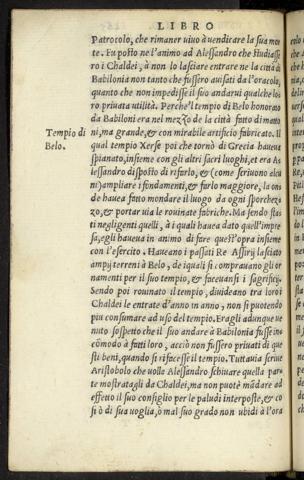 LIBRO
Patrocolo, che rimaner uiuo à uendicare la sua mor
te. Fu posto ne l'animo ad Alessandro che studiasse
ro i Chaldei, à non lo lasciare entrare ne la città di
Babilonia non tanto che fussero auisati da l'oracolo,
quanto che non impedisse il suo andarui qualche lo=
ro priuata utilità. Perche'l tempio di Belo honorato
da Babiloni era nel mezzo de la città fatto di matto
ni, ma grande, & con mirabile artificio fabricato. Il
Tempio di Belo.
qual tempio Xerse poi che tornò di Grecia haueua
spianato, insieme con gli altri sacri luoghi, et era A=
lessandro disposto di rifarlo, & (come scriuono alcu
ni) ampliare i fondamenti, & farlo maggiore, la on=
de haueа fatto mondare il luogo da ogni sporchez=
zo, & portar uia le rouinate fabriche. Ma sendo sta=
ti negligenti quelli, à i quali haueua dato quell'impre
sa, egli haueua in animo di fare quest'opra insieme
con l'esercito. Haueano i passati Re Assirij lasciato
ampij terreni à Belo, de i quali si comprauano gli or
namenti per il suo tempio, & faceuansi i sacrificij.
Sendo poi rouinato il tempio, diuideano tra loro i
Chaldei le entrate d'anno in anno, non si potendo
piu consumare ad uso del tempio. Eragli adunque ue
nuto sospetto che il suo andare à Babilonia fusse in=
cōmodo à fatti loro, acciò non fussero priuati di que
sti beni, quando si rifacesse il tempio. Tuttauia scriue
Aristobolo che uolle Alessandro schiuare quella par=
te mostratagli da Chaldei, ma non potè mādare ad
effetto il suo consiglio per le paludi interposte, & co
si ò di sua uoglia, ò mal suo grado non ubidì à l'ora